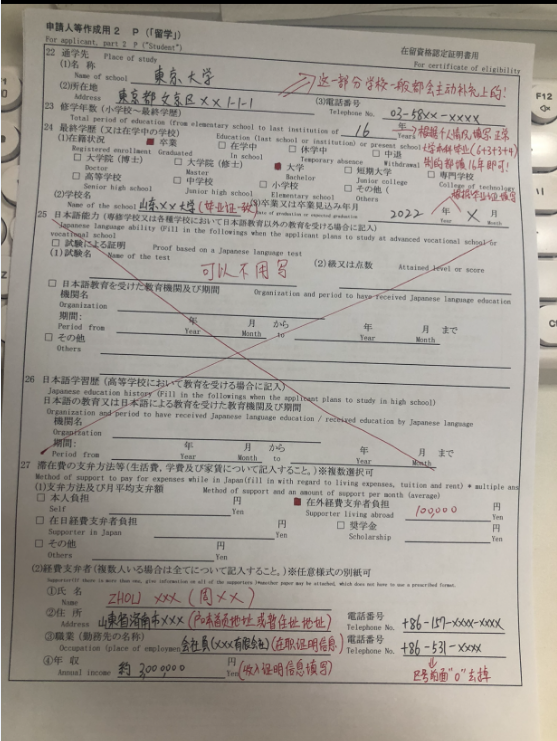 申請人等作成用 2 P (「留学」)
For applicant, part 2 P ("Student")
在留資格認定証明書用
For certificate of eligibility
22 通学先 Place of study
(1)名 称
Name of school 東京大学
这一部分学校一般都会主动补充上的!
(2)所在地
Address 東京都文京区XX 1-1-1
(3)電話番号
Telephone No. 03-58xx-xxxx
23 修学年数 (小学校～最終学歴)
Total period of education (from elementary school to last institution of 16 年
24 最終学歴 (又は在学中の学校) Education (last school or institution) or present school
(1)在籍状況 ■ 卒業 □ 在学中 □ 休学中 □ 中退
Registered enrollment Graduated In school Temporary absence Withdrawal
□ 大学院 (博士) □ 大学院 (修士) ■ 大学 □ 短期大学 □ 専門学校
Doctor Master Bachelor Junior college College of technology
□ 高等学校 □ 中学校 □ 小学校 □ その他 (
Senior high school Junior high school Elementary school Others
(2)学校名
Name of the school 山东XX大学 (毕业证一致)
(3)卒業又は卒業見込み年月
Date of graduation or expected graduation 2022 年 X 月
Year Month
25 日本語能力 (専修学校又は各種学校において日本語教育以外の教育を受ける場合に記入)
Japanese language ability (Fill in the followings when the applicant plans to study at advanced vocational school or
vocational school
□ 試験による証明 Proof based on a Japanese language test
(1)試験名 Name of the test 可以不用写
(2)級又は点数 Attained level or score
□ 日本語教育を受けた教育機関及び期間 Organization and period to have received Japanese language education
機関名
Organization
期間: 年 月 から 年 月 まで
Period from Year Month to Year Month
□ その他
Others
26 日本語学習歴 (高等学校において教育を受ける場合に記入)
Japanese education history (Fill in the followings when the applicant plans to study in high school)
日本語の教育又は日本語による教育を受けた教育機関及び期間
Organization and period to have received Japanese language education / received education by Japanese language
機関名
Organization
期間: 年 月 から 年 月 まで
Period from Year Month to Year Month
27 滞在費の支弁方法等(生活費、学費及び家賃について記入すること。)※複数選択可
Method of support to pay for expenses while in Japan(fill in with regard to living expenses, tuition and rent) * multiple ans
(1)支弁方法及び月平均支弁額 Method of support and an amount of support per month (average)
□ 本人負担 円 ■ 在外経費支弁者負担 100,000 円
Self Yen Supporter living abroad Yen
□ 在日経費支弁者負担 円 □ 奨学金 円
Supporter in Japan Yen Scholarship Yen
□ その他 円
Others Yen
(2)経費支弁者 (複数人いる場合は全てについて記入すること。)※任意様式の別紙可
Supporter(If there is more than one, give information on all of the supporters )*another paper may be attached, which does not have to use a prescribed format.
①氏 名
Name ZHOU XXX (周XX)
②住 所
Address 山東省済南市XXX (户口本首页地址或暂住址地址)
電話番号
Telephone No. +86-157-xxxx-xxxx
③職業 (勤務先の名称)
Occupation (place of employmen 会社員(XXX有限会社) (在职证明信息)
電話番号
Telephone No. +86-531-xxxx
④年 収
Annual income 約 300,0000 円 Yen (收入证明信息填写)
区号前面"0"去掉
F12